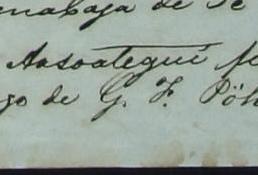 enabaja de Te
Aasoategui fe
go de G. F. Pöh